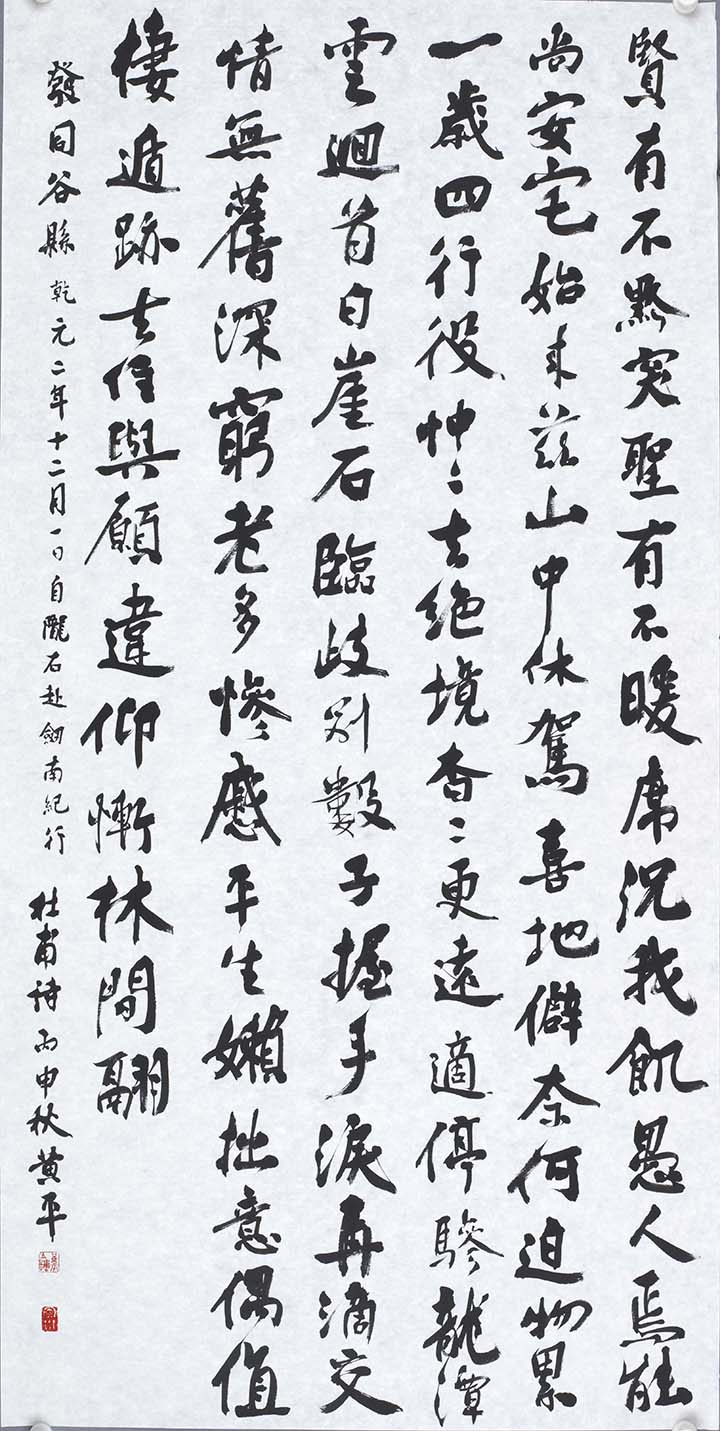 賢有不黔突聖有不暖席況我飢愚人焉能
尚安宅始来茲山中休駕喜地僻奈何迫物累
一歲四行役忡〻去絕境杳〻更遠適停驂龍潭
雲迴首白崖石臨歧別數子握手淚再滴交
情無舊深窮老多慘慼平生嬾拙意偶值
棲遁跡去住與願違仰慚林間翮
發同谷縣 乾元二年十二月一日自隴右赴劍南紀行 杜甫詩 丙申秋 黄平